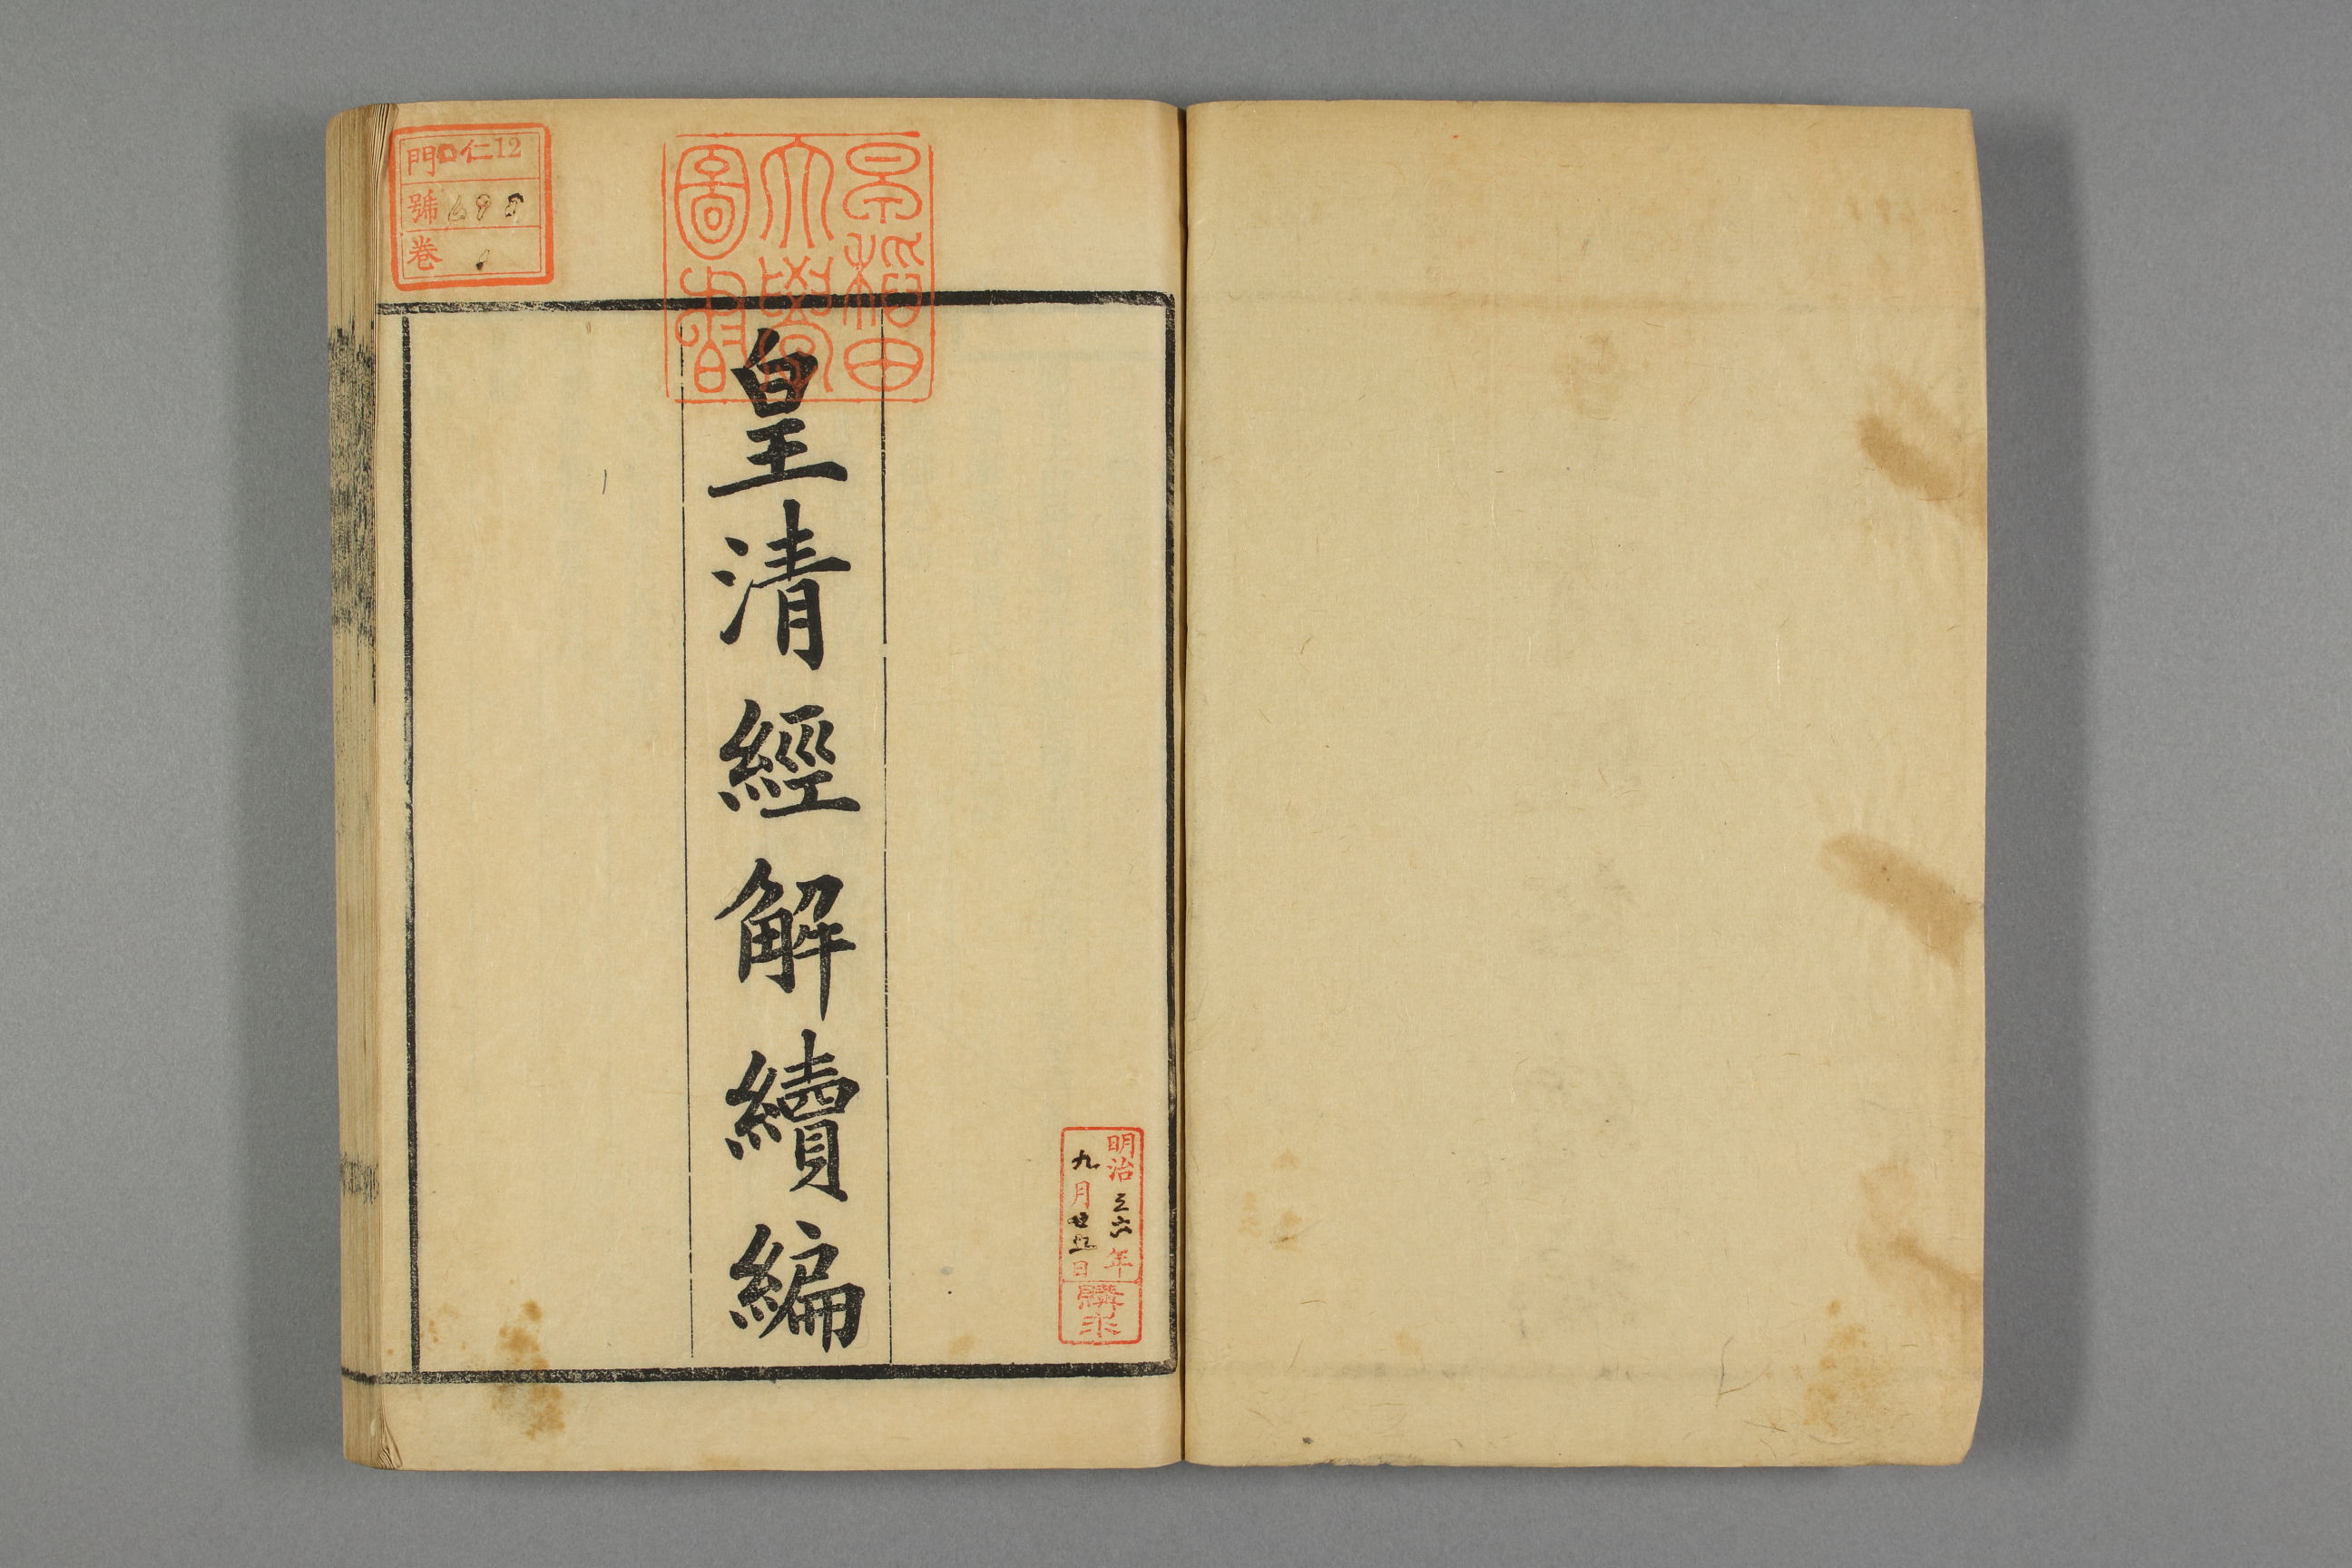 早稲田
大學
圖書
皇清經解續編
明治三六年
九月廿五日
購求
門 仁12
號 698
卷 1